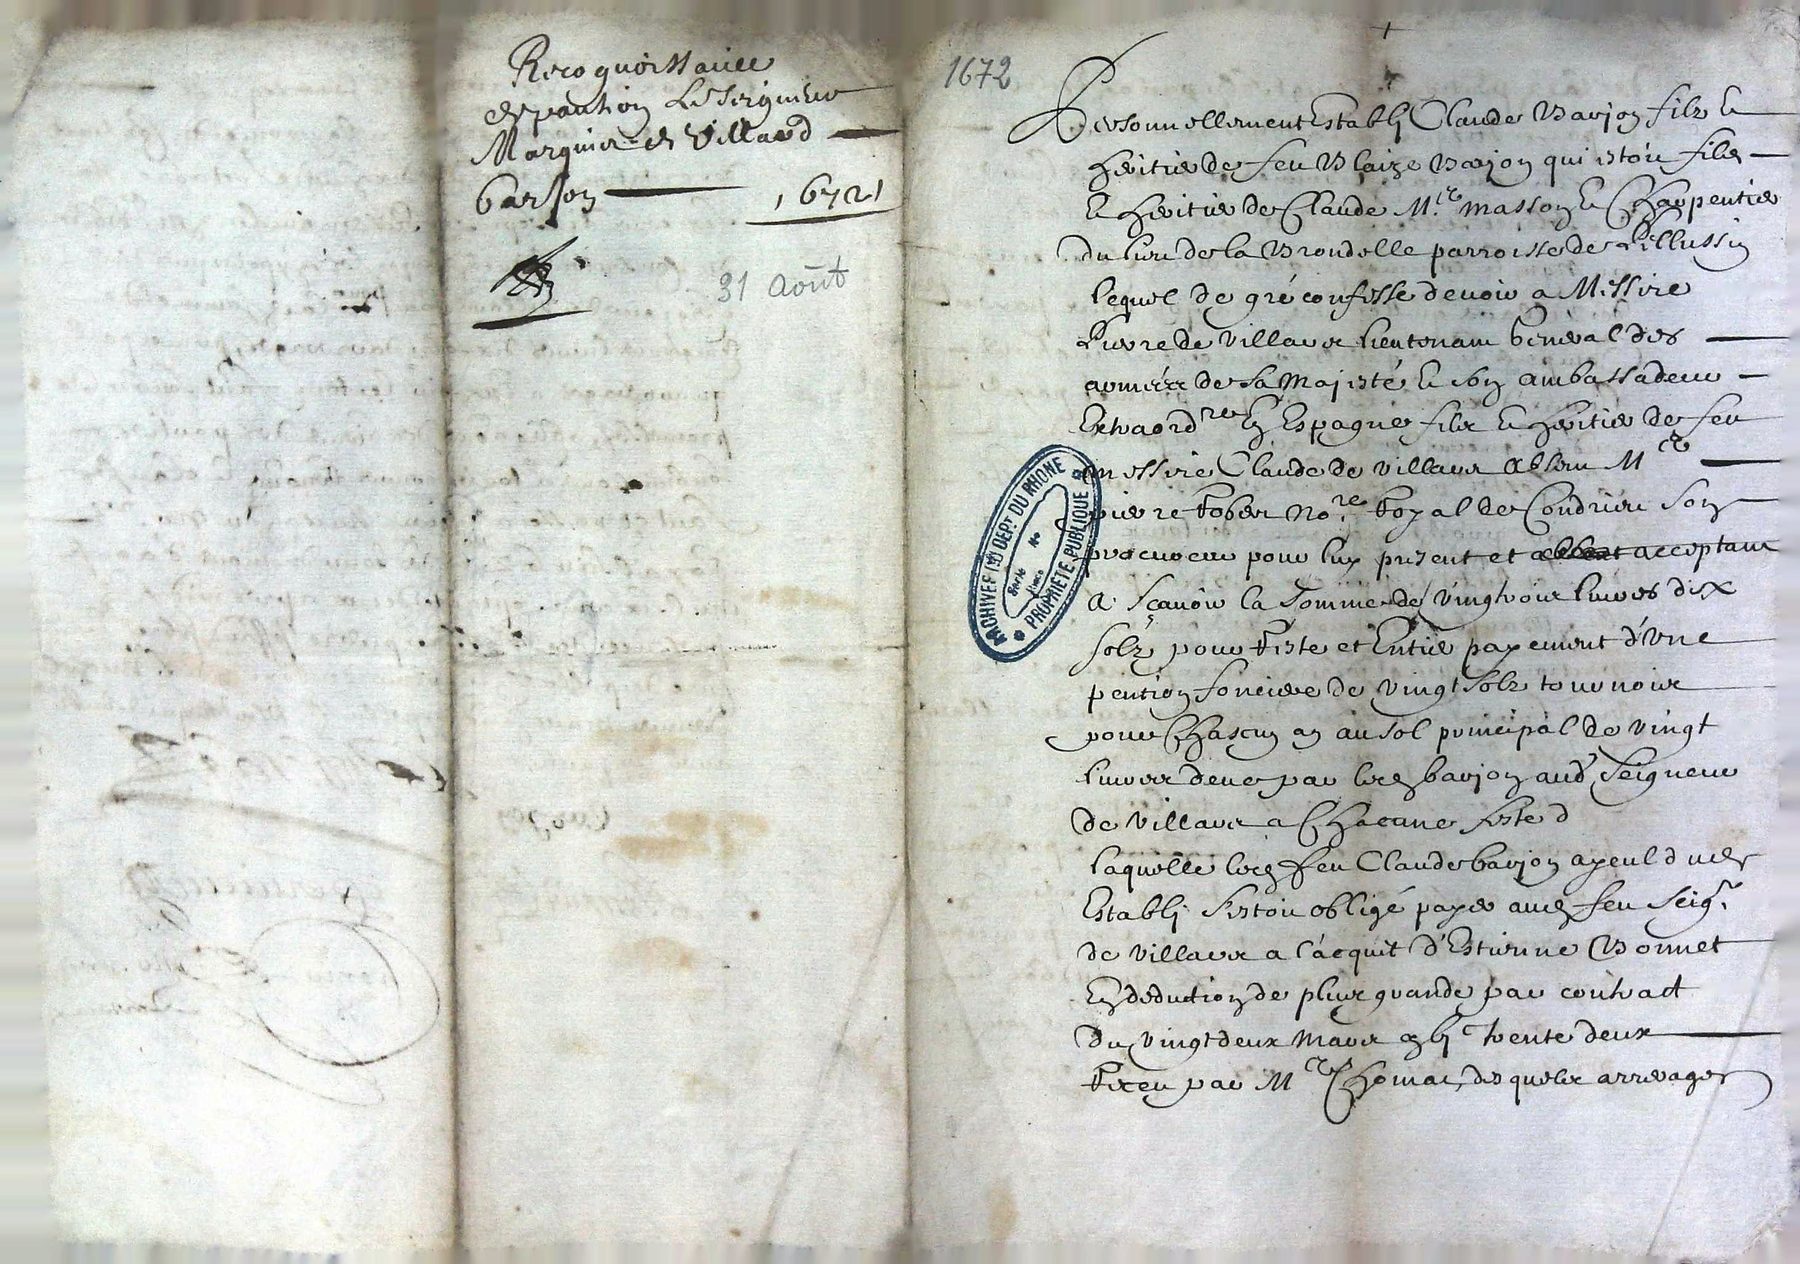 Recognoissance
de pantion Le Seigneur
Marquis de Villard
Barjon 1672
31 Août
1672
Personnellement Estably Claude Barjon filz &
heritier de feu Blaize Barjon qui estoit filz
& heritier de Claude M.re masson & Charpentier
du lieu de la Brondelle parroisse de Pellussin
lequel de gré confesse devoir a Messire
Pierre de Villars lieutenant General des
armées de Sa Majesté & son ambassadeur
Extraord.re En Espagne filz & heritier de feu
messire Claude de Villars absent M.re
pierre Rober No.re Royal de Condrieu son
procureur pour luy present et acceptant
A Sçavoir la Somme de vingt une livres dix
solz pour Reste et Entier payement d'une
pention fonciere de vingt solz tournois
pour Chascun an au sol principal de vingt
livres deue par led Barjon aud Seigneur
de Villars a Chacune feste d
laquelle led feu Claude barjon ayeul dud
Estably s'estoit obligé payer aud feu Seig.r
de Villars a l'acquit d'Estienne Bonnet
En deduction de plus grande par contract
du vingt deux Mars trente deux
Receu par M.re Thomas, desquelz arrerages
ARCHIVES DU DEPT. DU RHONE
PROPRIETE PUBLIQUE
Serie
No
Liasse